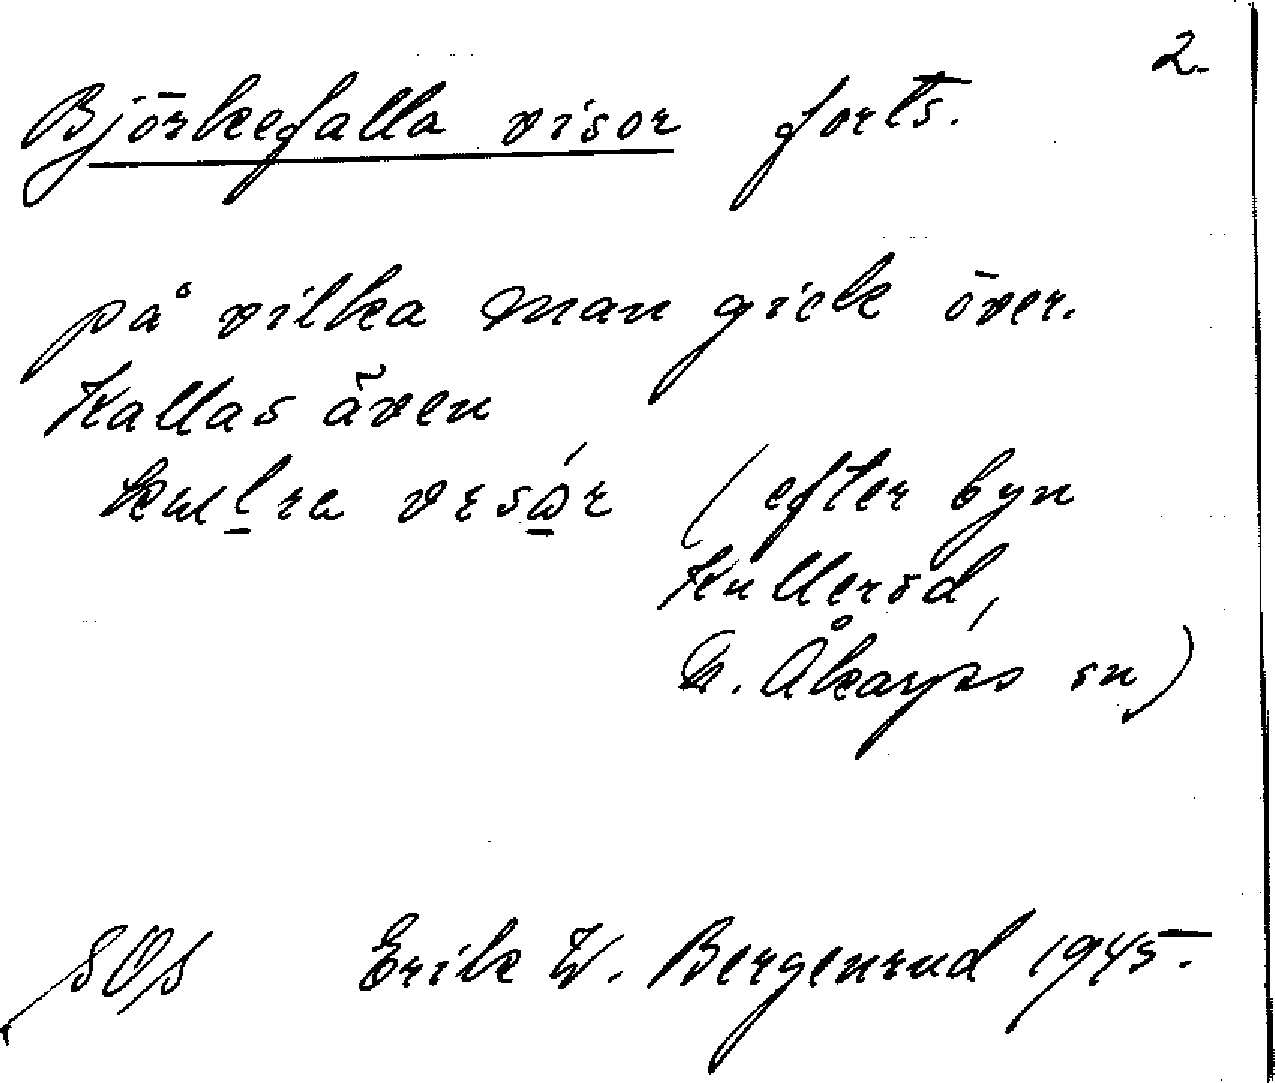 2.
Björkefalla visor forts.
på vilka man gick över.
Kallas även
(efter byn
Kulleröd,
N. Åkarps sn)
Erik W. Bergenrud 1945.